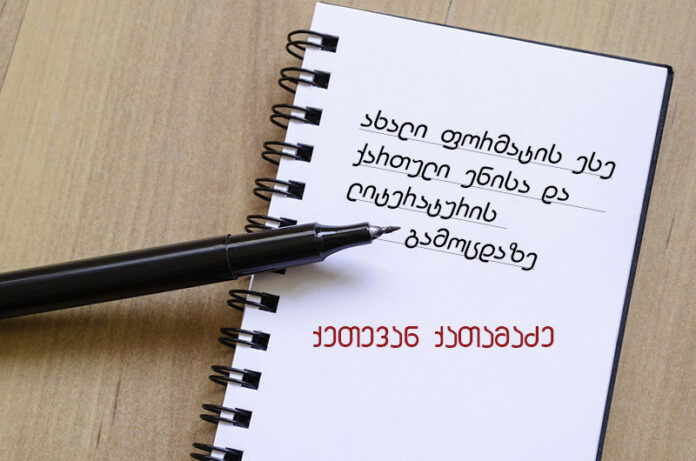 ახალი ფორმატის ესე
ქართული ენისა და
ლიტერატურის
გამოცდაზე
ქეთევან ქათამაძე